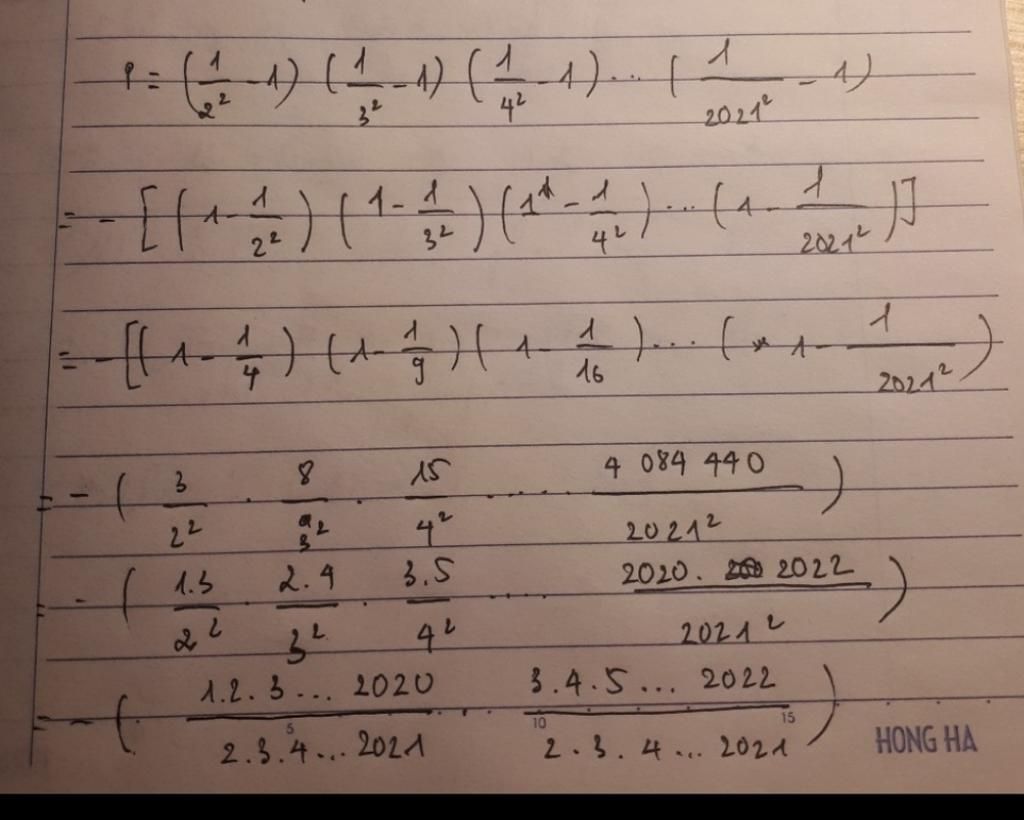 P = (1/2² - 1) (1/3² - 1) (1/4² - 1) ... (1/2021² - 1)
= - [(1 - 1/2²) (1 - 1/3²) (1 - 1/4²) ... (1 - 1/2021²)]
= - [(1 - 1/4) (1 - 1/9) (1 - 1/16) ... (1 - 1/2021²)
= - (3/2² . 8/3² . 15/4² ..... 4 084 440/2021²)
= - (1.3/2² . 2.4/3² . 3.5/4² ..... 2020. 2022/2021²)
= - (1.2.3... 2020/2.3.4... 2021 . 3.4.5... 2022/2.3.4... 2021)
5 10 15
HONG HA